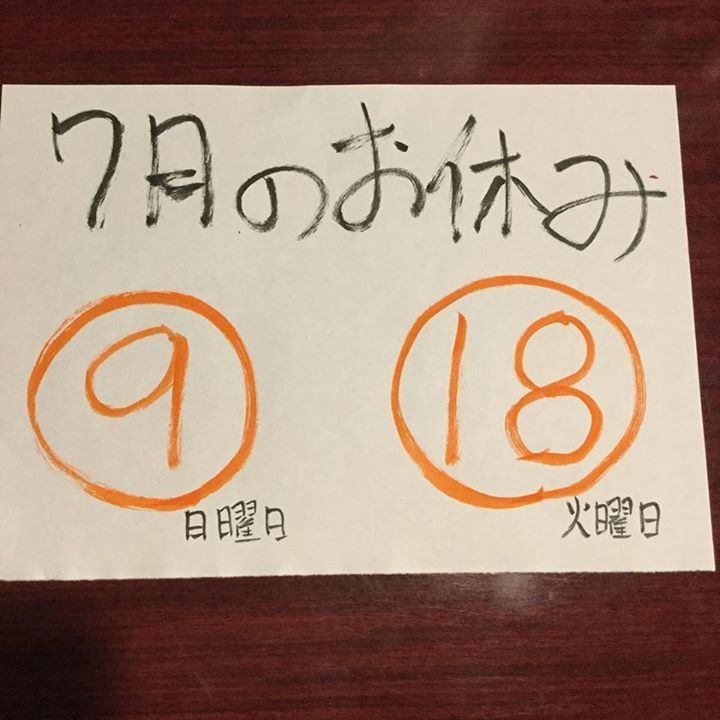 7月のお休み
9 18
日曜日 火曜日